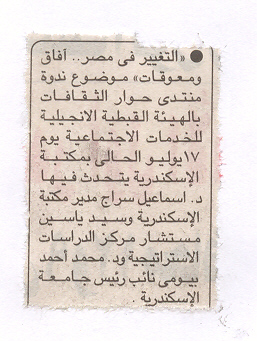 ● «التغيير فى مصر.. آفاق
ومعوقات» موضوع ندوة
منتدى حوار الثقافات
بالهيئة القبطية الانجيلية
للخدمات الاجتماعية يوم
١٧يوليو الحالى بمكتبة
الإسكندرية يتحدث فيها
د. اسماعيل سراج مدير مكتبة
الإسكندرية وسيد ياسين
مستشار مركز الدراسات
الاستراتيجية ود. محمد أحمد
بيومى نائب رئيس جامعة
الإسكندرية .